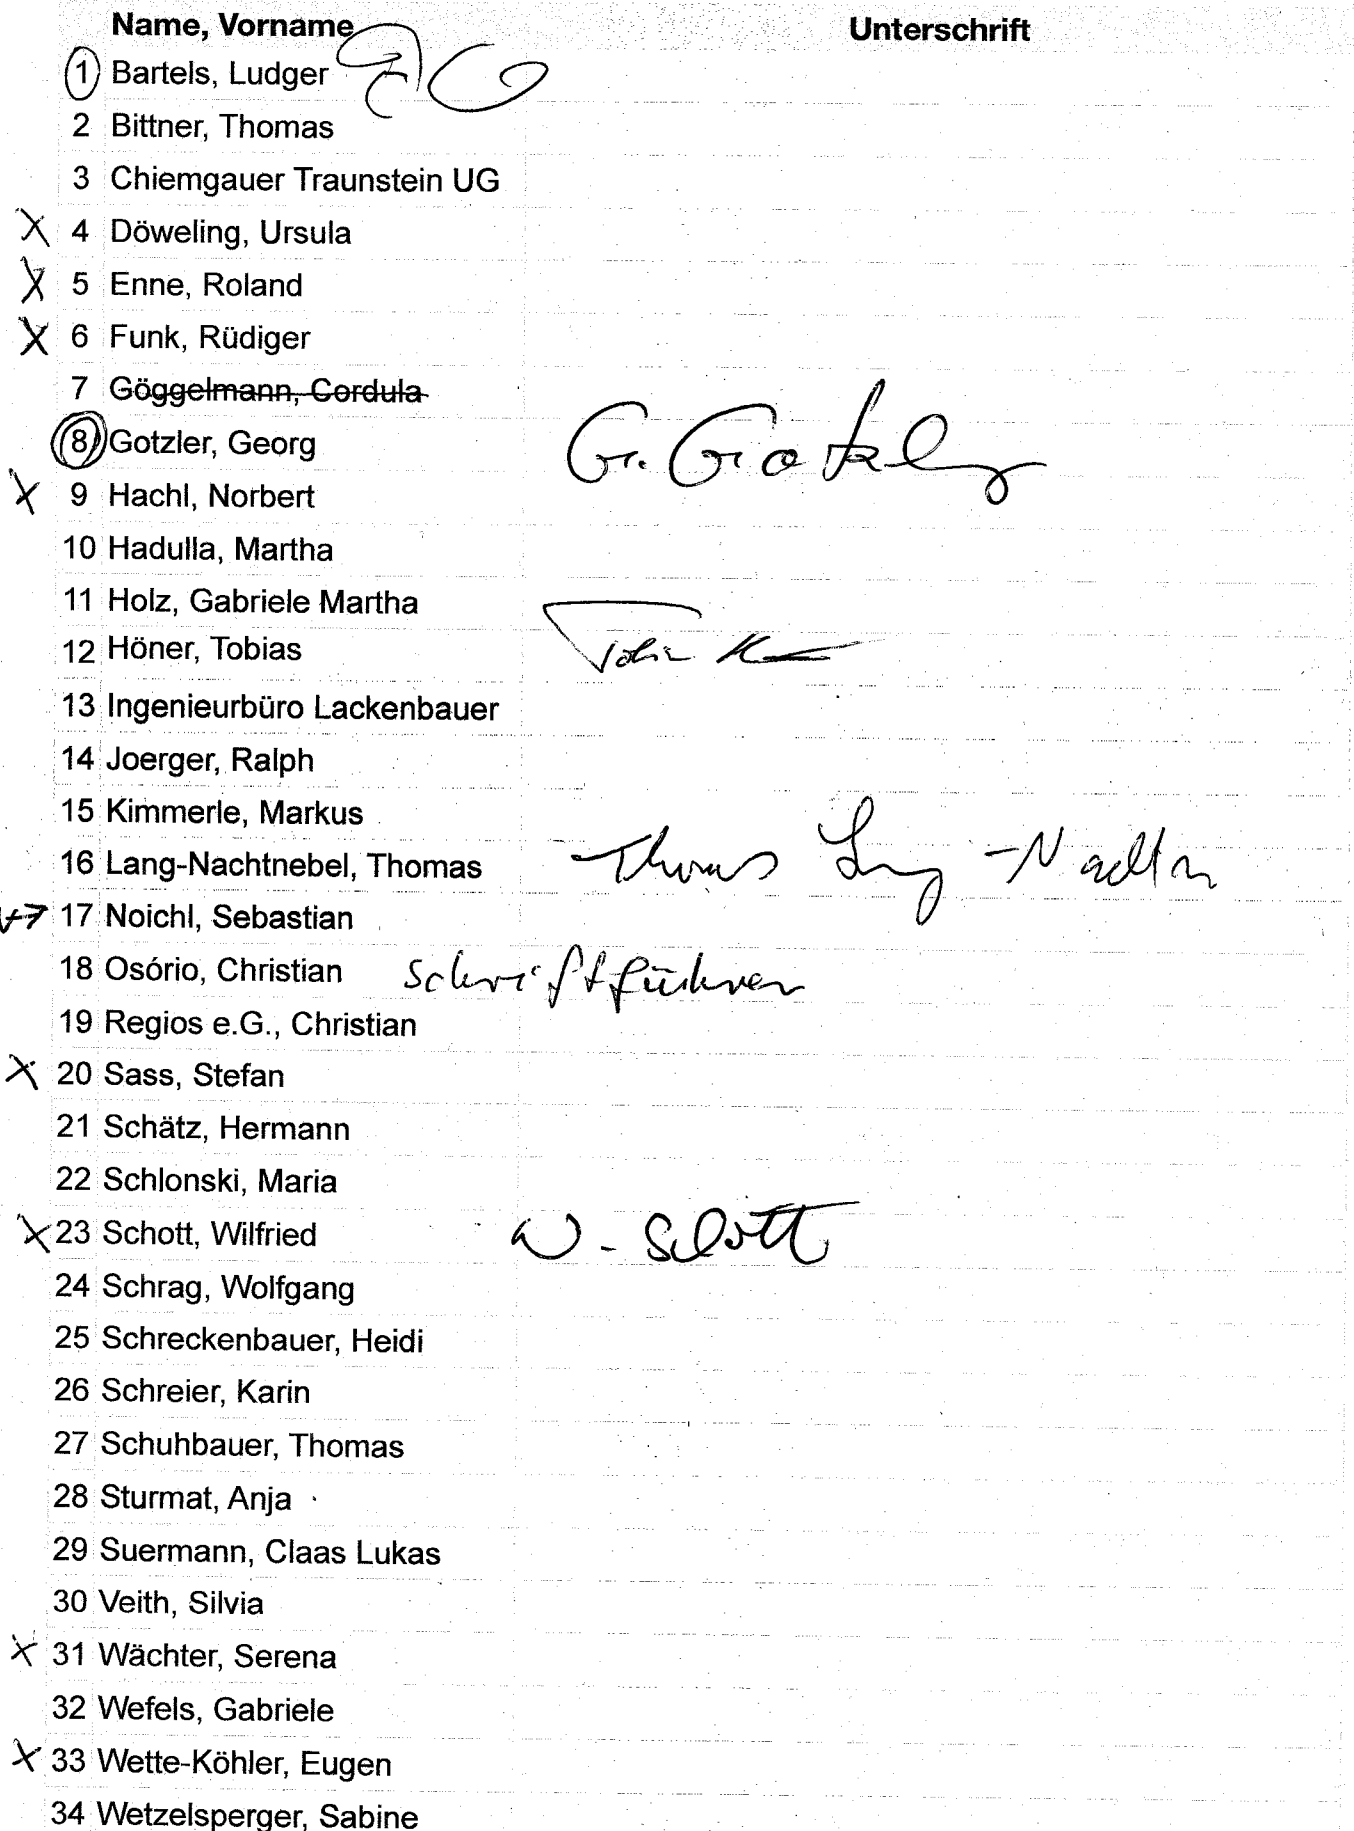 Name, Vorname Unterschrift
1 Bartels, Ludger
2 Bittner, Thomas
3 Chiemgauer Traunstein UG
X 4 Döweling, Ursula
X 5 Enne, Roland
X 6 Funk, Rüdiger
7 Göggelmann, Cordula
8 Gotzler, Georg G. Gotzler
X 9 Hachl, Norbert
10 Hadulla, Martha
11 Holz, Gabriele Martha
12 Höner, Tobias Tobias
13 Ingenieurbüro Lackenbauer
14 Joerger, Ralph
15 Kimmerle, Markus
16 Lang-Nachtnebel, Thomas Thomas Lang-Nachtn
17 Noichl, Sebastian
18 Osório, Christian Schriftführer
19 Regios e.G., Christian
X 20 Sass, Stefan
21 Schätz, Hermann
22 Schlonski, Maria
X 23 Schott, Wilfried W. Schott
24 Schrag, Wolfgang
25 Schreckenbauer, Heidi
26 Schreier, Karin
27 Schuhbauer, Thomas
28 Sturmat, Anja
29 Suermann, Claas Lukas
30 Veith, Silvia
X 31 Wächter, Serena
32 Wefels, Gabriele
X 33 Wette-Köhler, Eugen
34 Wetzelsperger, Sabine